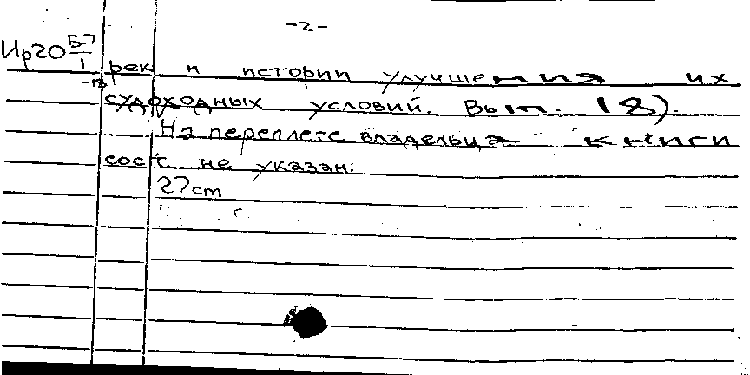 -2-
Ир20 Б-7/1
рек и истории улучшения их
судоходных условий. Вып. 18).
На переплете владельца книги
сост. не указан.
27cm